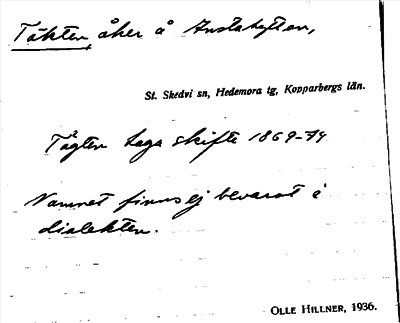 Täkten, åker å Anstahyttan,
St. Skedvi sn, Hedemora tg, Kopparbergs län.
Tägten Laga skifte 1869-74
Namnet finns ej bevarat i
dialekten.
OLLE HILLNER, 1936.